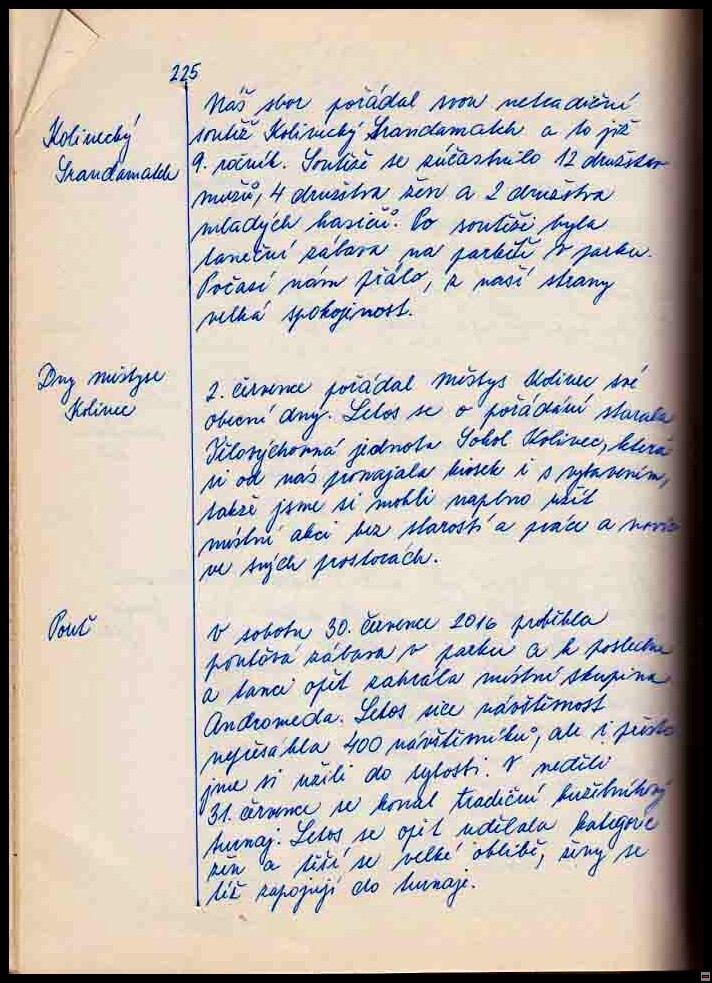 225
Kolinecký
Srandamatch
Náš sbor pořádal svou netradiční
soutěž Kolinecký Srandamatch a to již
9. ročník. Soutěže se zúčastnilo 12 družstev
mužů, 4 družstva žen a 2 družstva
mladých hasičů. Po soutěži byla
taneční zábava na parketě v parku.
Počasí nám přálo, z naší strany
velká spokojenost.
Dny městyse
Kolinec
2. července pořádal Městys Kolinec své
obecní dny. Letos se o pořádání starala
Tělovýchovná jednota Sokol Kolinec, která
si od nás pronajala kiosek i s vybavením,
takže jsme si mohli naplno užít
místní akci bez starostí a práce a navíc
ve svých prostorách.
Pouť
V sobotu 30. července 2016 proběhla
pouťová zábava v parku a k poslechu
a tanci opět zahrála místní skupina
Andromeda. Letos sice návštěvnost
nepřesáhla 400 návštěvníků, ale i přesto
jsme si užili do sytosti. V neděli
31. července se konal tradiční kuželníkový
turnaj. Letos se opět udělala kategorie
žen a těší se velké oblibě, ženy se
též zapojují do turnaje.